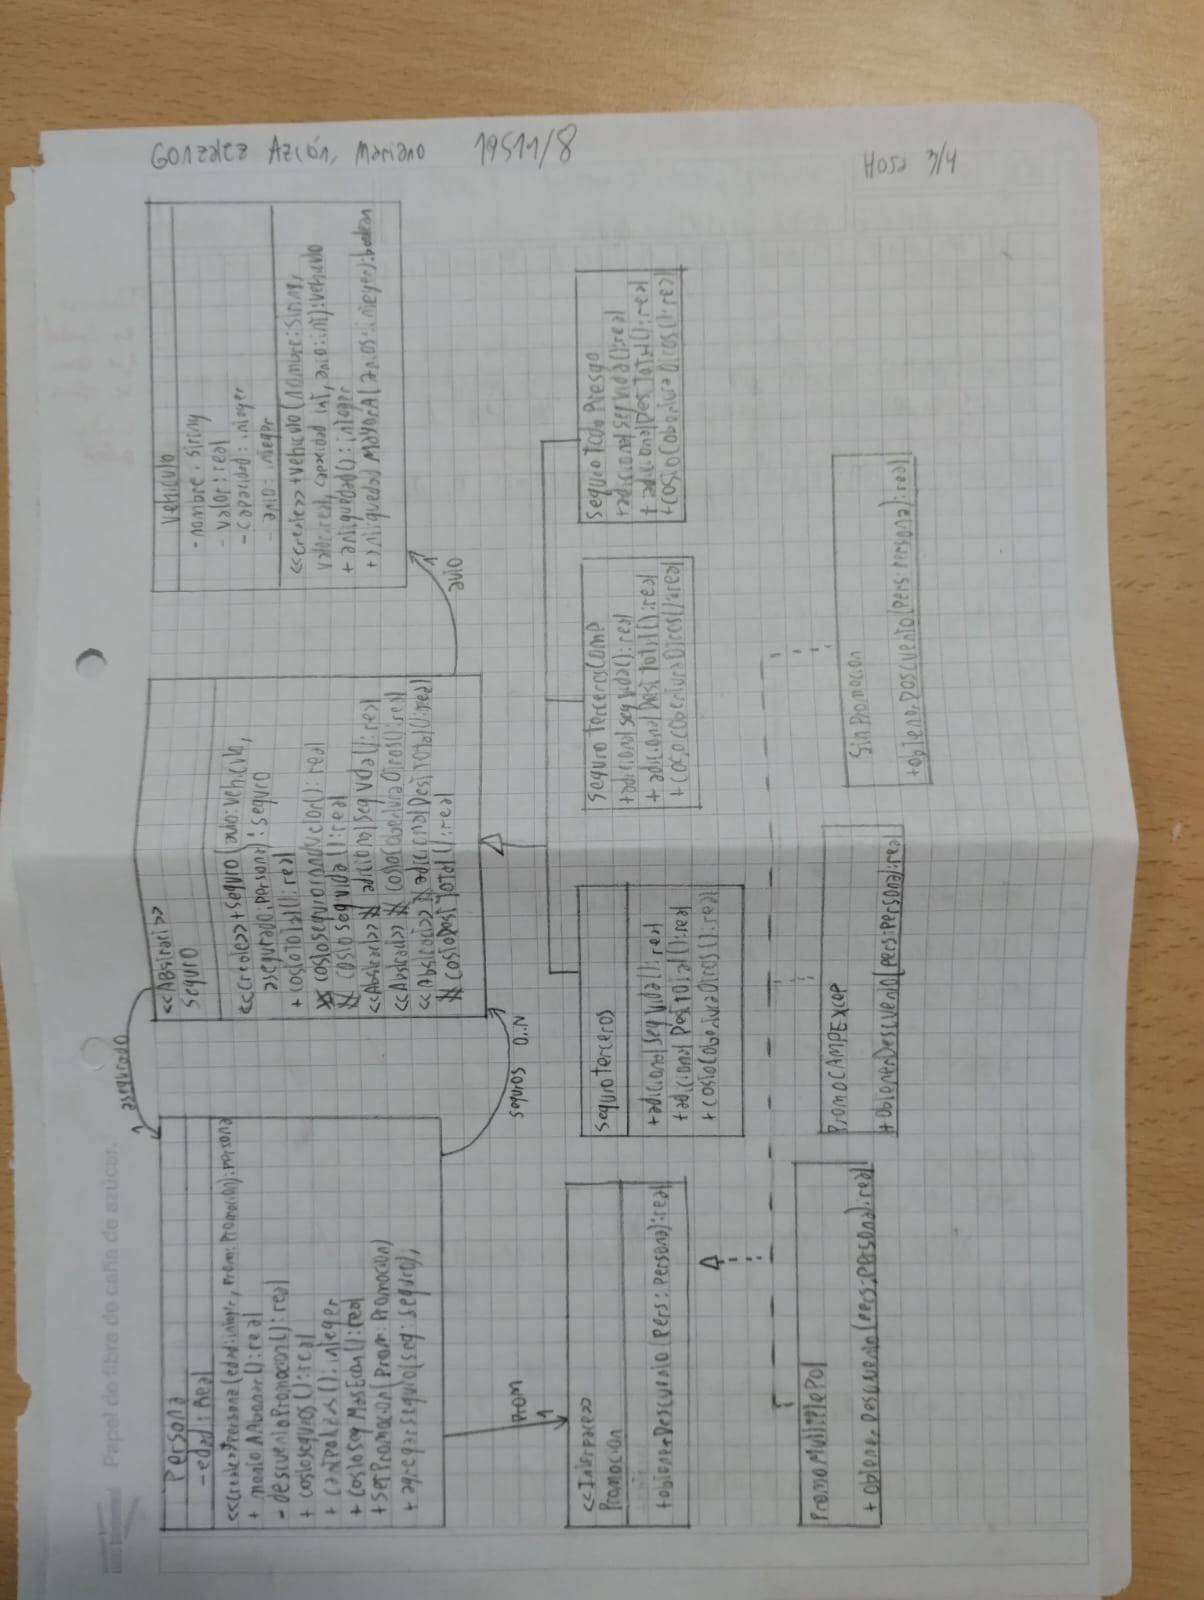 Papel de fibra de caña de azúcar.
asegurado
1
Persona
-edad: Real
<<create>>+Persona(edad:integer, Prom: Promocion): persona
+ montoAAbonar(): real
- descuentoPromocion(): real
+ costoseguros(): real
+ cantPolizas(): integer
+ costoSegMasEcon(): real
+setPromocion(Prom: Promocion)
+ agregarseguro(seg: seguro),
<<ABstract>>
seguro
<<create>>+seguro(auto: vehiculo,
asegurado: persona): seguro
+ costoTotal(): real
# costoseguroconductor(): real
# costo seg vida(): real
<<Abstract>> # adicionalSeg vida(): real
<<Abstract>> # costoCoberturaOtros(): real
<<Abstract>> # adicionalDestTotal(): real
# costoDestTotal(): real
vehiculo
- nombre: string
- valor: real
- capacidad: integer
- anio: integer
<<create>>+vehiculo(nombre: string,
valor:real, capacidad int, anio: int): vehiculo
+ antiguedad(): integer
+ antiguedad MayorA(anios: integer): boolean
1
auto
seguros 0..N
Prom
1
<<Interface>>
Promocion
+obtenerDescuento(pers: persona): real
seguroterceros
+adicionalseg vida(): real
+adicional DestTotal(): real
+costoCoberturaOtros(): real
seguro tercerosComp
+adicionalseg vida(): real
+ adicionalDestTotal(): real
+costoCoberturaOtros(): real
seguroTodo Riesgo
+adicionalSeg vida(): real
+ adicionalDestTotal(): real
+costoCoberturaOtros(): real
PromoMultiplePol
+ obtenerDescuento(pers: persona): real
PromoCAMPExcep
+obtenerDescuento(pers: persona): real
SinPromocion
+obtenerDescuento(pers: persona): real
Gonzalez Azcón, Mariano 19511/8
Hoja 3/4